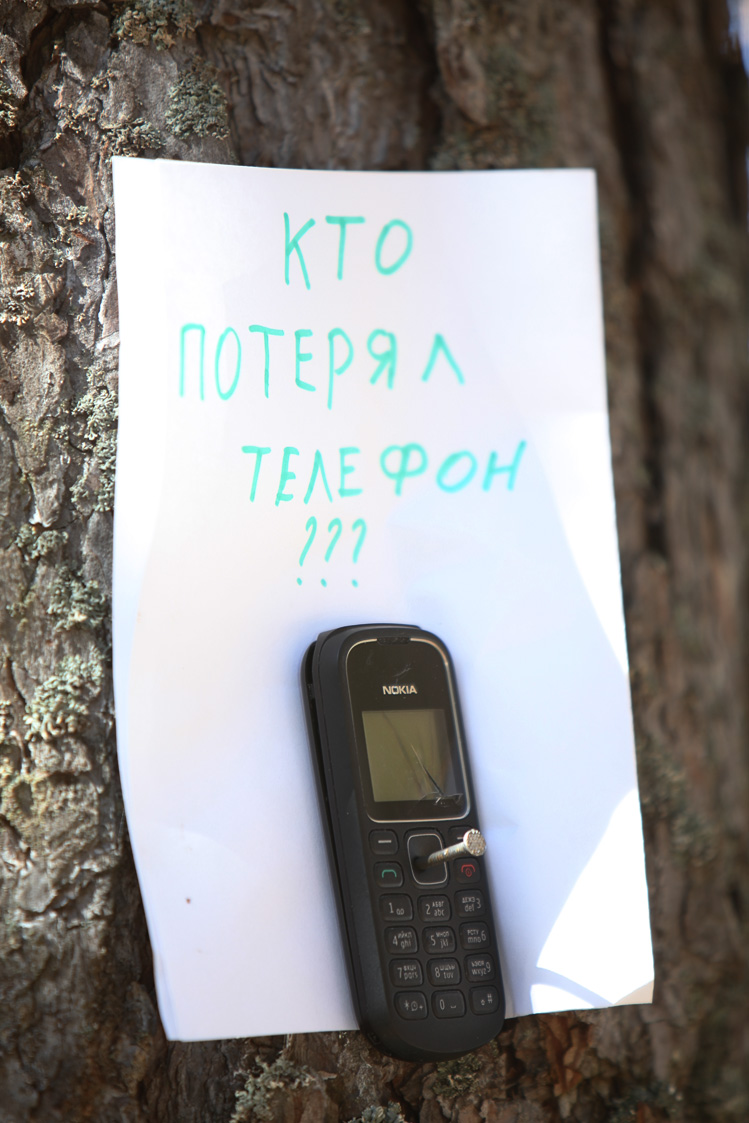 КТО
ПОТЕРЯЛ
ТЕЛЕФОН
???
NOKIA
1
2 абвг abc
дежз def 3
4 ийкл ghi
5 мноп jkl
рсту mno 6
7 фхцч pqrs
8 шщъы tuv
ьэюя wxyz 9
* +
0
#